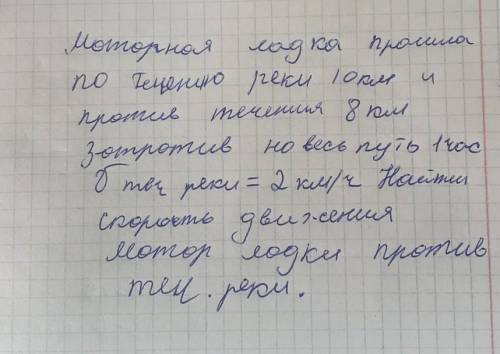 Моторная лодка прошла
по течению реки 10км и
против течения 8 км
затротив на весь путь 1 час
теч реки = 2 км/ч Найти
скорость движения
мотор лодки против
теч. реки.